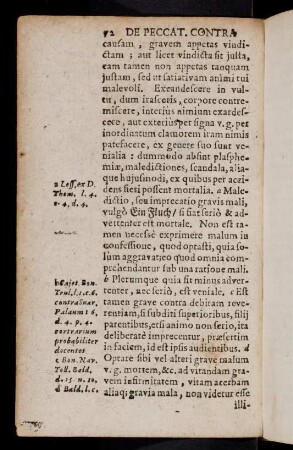 92 DE PECCAT. CONTRA
causam, gravem appetas vindi-
ctam; aut licet vindicta sit justa,
eam tamen non appetas tanquam
justam, sed ut satiativam animi tui
malevoli. Excandescere in vul-
tu, dum irasceris, corpore contre-
miscere, interius nimium exardes-
cere, aut exterius per signa v.g. per
inordinatum clamorem iram nimis
patefacere, ex genere suo sunt ve-
nialia: dummodo absint plasphe-
miæ, maledictiones, scandala, aliaq;
hujusmodi, ex quibus per acci-
dens fieri possent mortalia. a Male-
dictio, seu imprecatio gravis mali,
vulgò Ein Fluch/ si fiat seriò & ad-
vertenter est mortale. Non est ta-
men necesse exprimere malum in
confessione, quod optasti, quia so-
lùm aggravativo quod omnia com-
prehendantur sub una ratione mali.
b Plerumque quia sit minus adver-
tenter, nec seriò, est veniale. c Est
tamen grave contra debitam reve-
rentiam, si subditi superioribus, filij
parentibus, etsi animo non serio, ita
deliberatè imprecentur, præsertim
in faciem, id est ipsis audientibus. d
Optare sibi vel alteri grave malum
v.g. mortem, &c. ad vitandam gra-
vem infirmitatem, vitam acerbam
aliaq; gravia mala, non videtur esse
illi-
a Less, ex D.
Thom. l. 4.
c. 4, d. 4.
b Cajet. Bon.
Toul, l. 1. c. 6.
contra Suar.
Palaum 16,
d. 4. p. 4.
contrarium
probabiliter
docentes
c Bon. Nav.
Toll. Bald.
d. 15 n. 10.
d Bald. l. c.